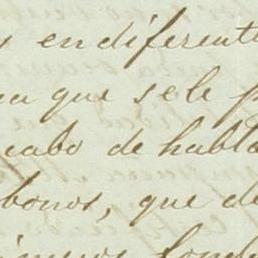 y en diferente
na que se le p
cabo de habla
bonos, que de